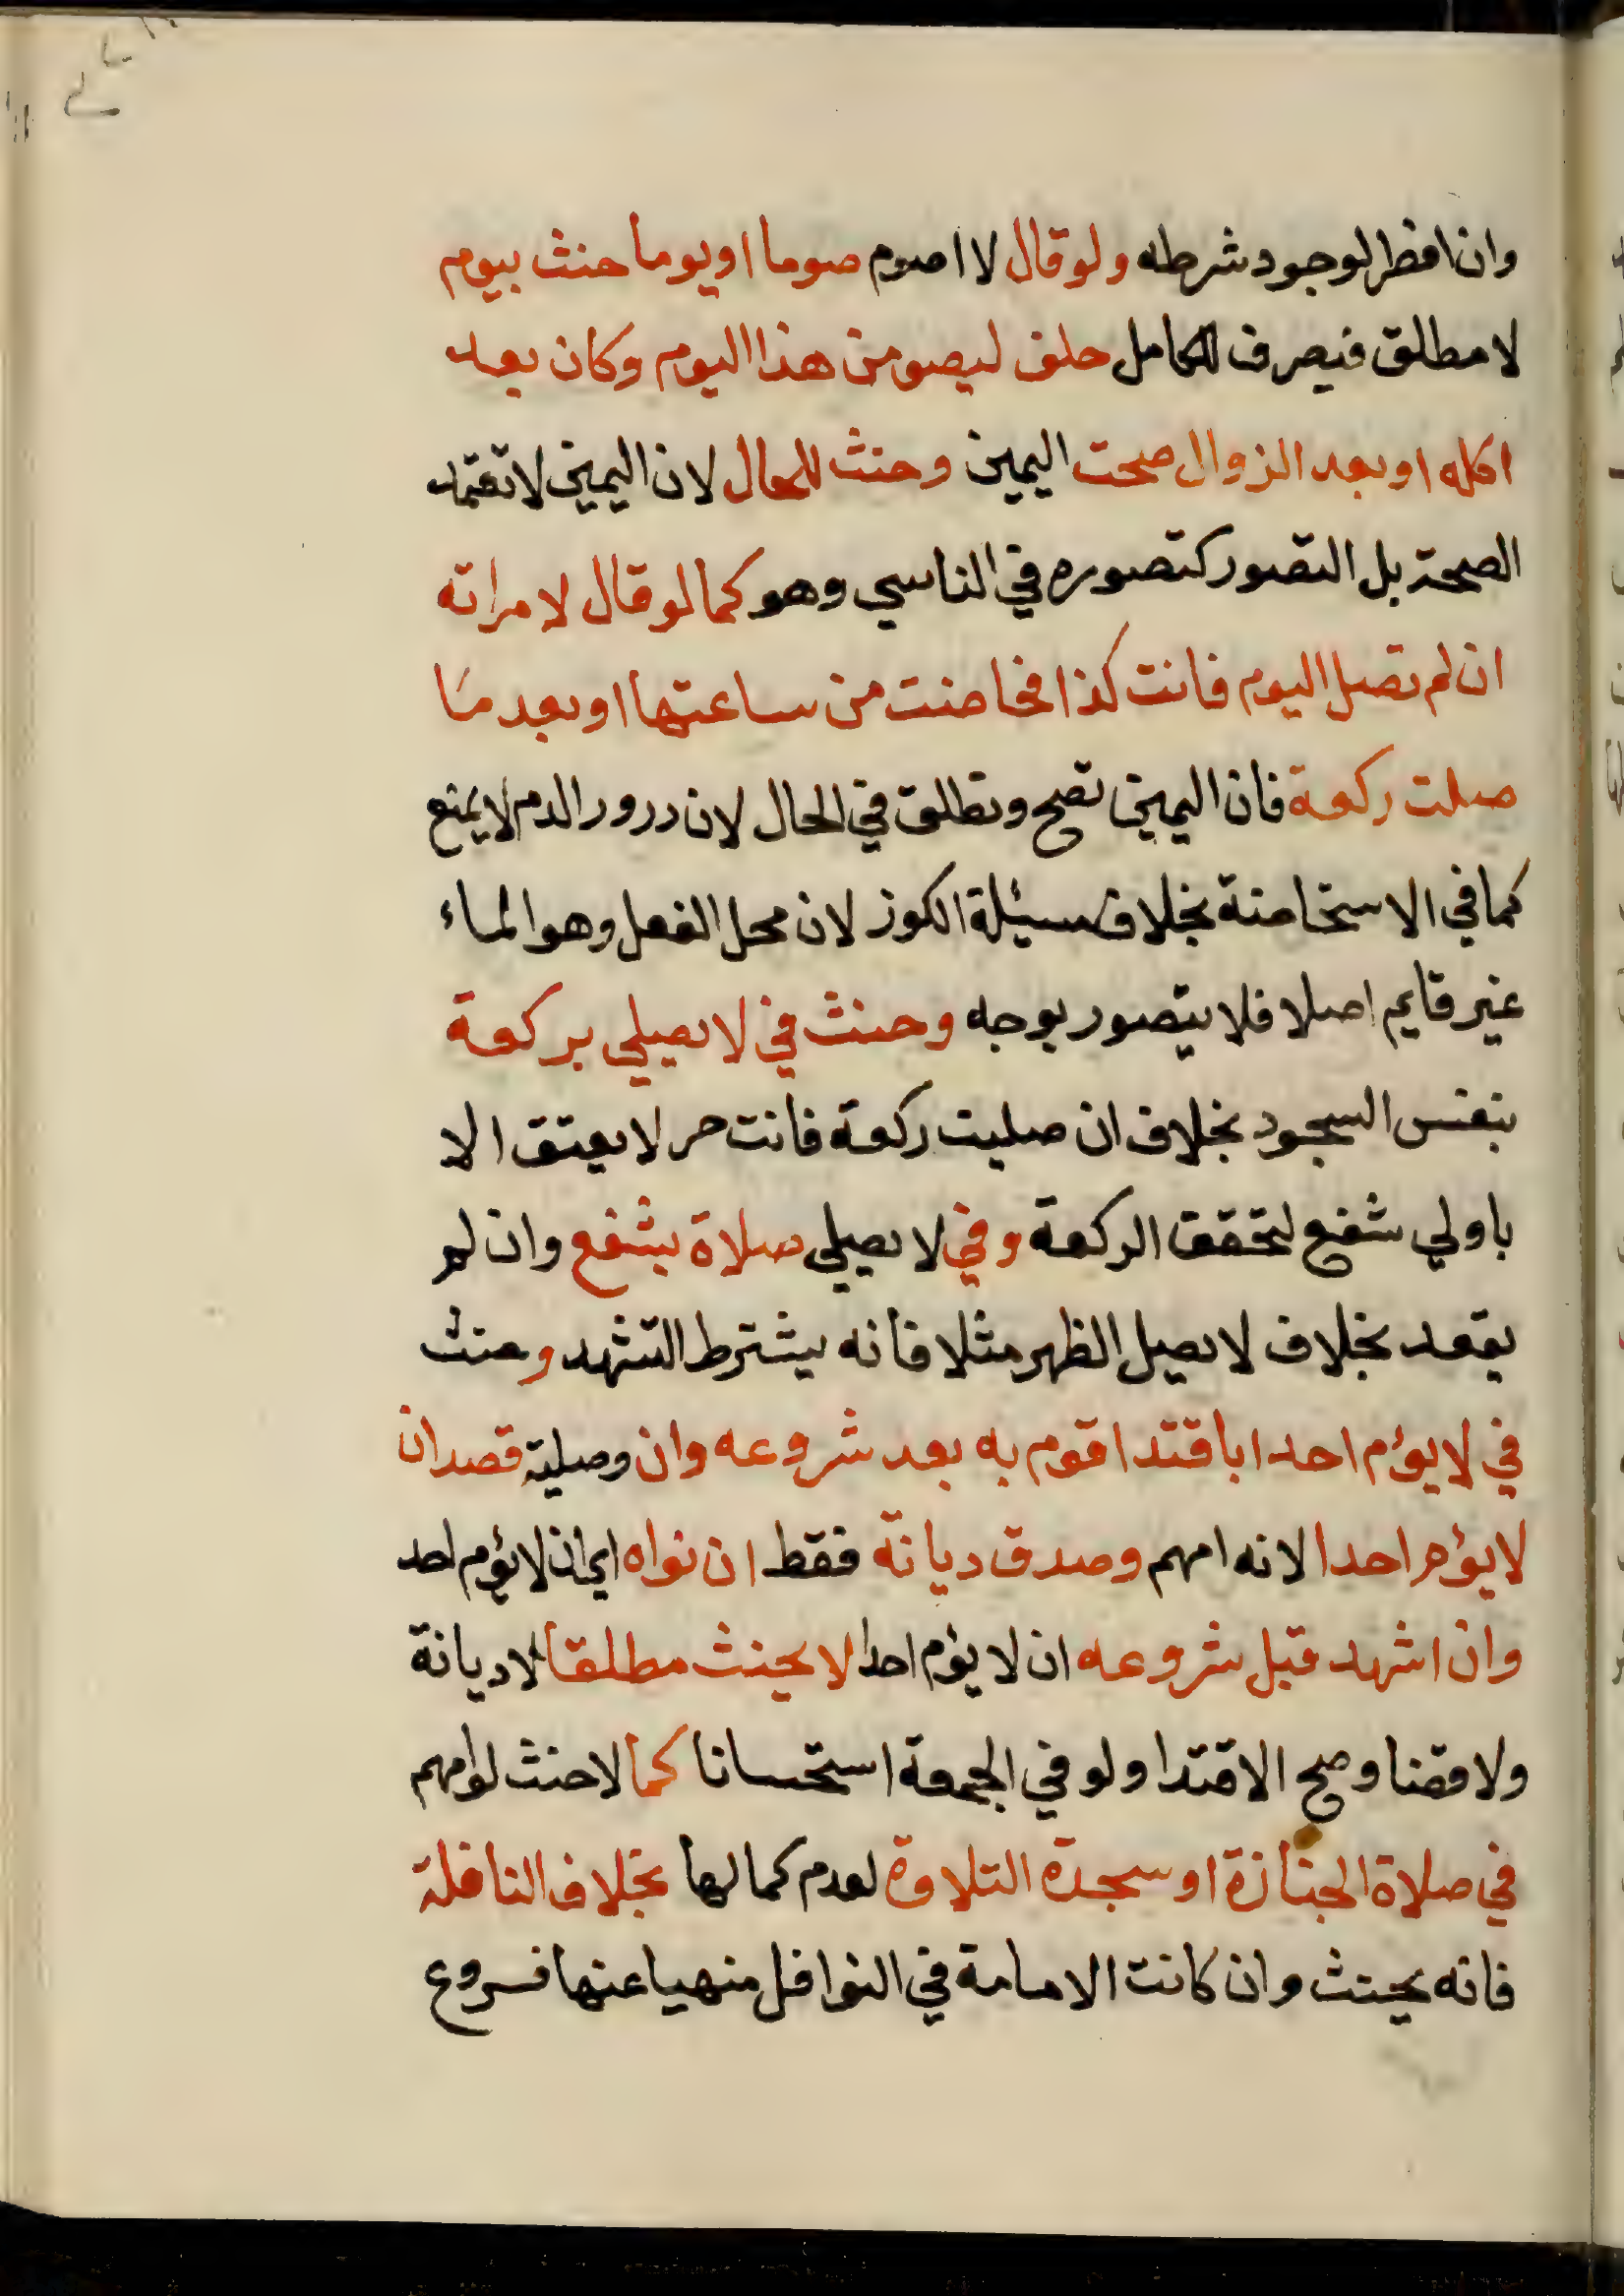 وان افطر لوجود شرطه ولو قال لا اصوم صوما او يوما حنث بيوم
لا مطلق فيصرف للكامل حلف ليصومن هذا اليوم وكان بعد
اكله او بعد الزوال صحت اليمين وحنث للحال لان اليمين لا تعتمد
الصحة بل التصور كتصوره في الناسي وهو كما لو قال لامراته
ان لم تصل اليوم فانت كذا فحاضت من ساعتها او بعد ما
صلت ركعة فان اليمين تصح وتطلق في الحال لان درور الدم لا يمنع
كما في الاستحاضة بخلاف مسئلة الكوز لان محل الفعل وهو الماء
غير قايم اصلا فلا يتصور بوجه وحنث في لا يصلي بركعة
بنفس السجود بخلاف ان صليت ركعة فانت حر لا يعتق الا
باولي شفع لتحقق الركعة وفي لا يصلي صلاة بشفع وان لم
يقعد بخلاف لا يصل الظهر مثلا فانه يشترط التشهد وحنث
في لا يؤم احدا باقتدا قوم به بعد شروعه وان وصلية قصد ان
لا يؤم احدا لانه امهم وصدق ديانة فقط ان نواه اي ان لا يؤم احد
وان اشهد قبل شروعه ان لا يؤم احدا لا يحنث مطلقا لا ديانة
ولا قضا وصح الاقتدا ولو في الجمعة استحسانا كما لا حنث لو امهم
في صلاة الجنازة او سجدة التلاوة لعدم كمالها بخلاف النافلة
فانه يحنث وان كانت الامامة في النوافل منهيا عنها فروع